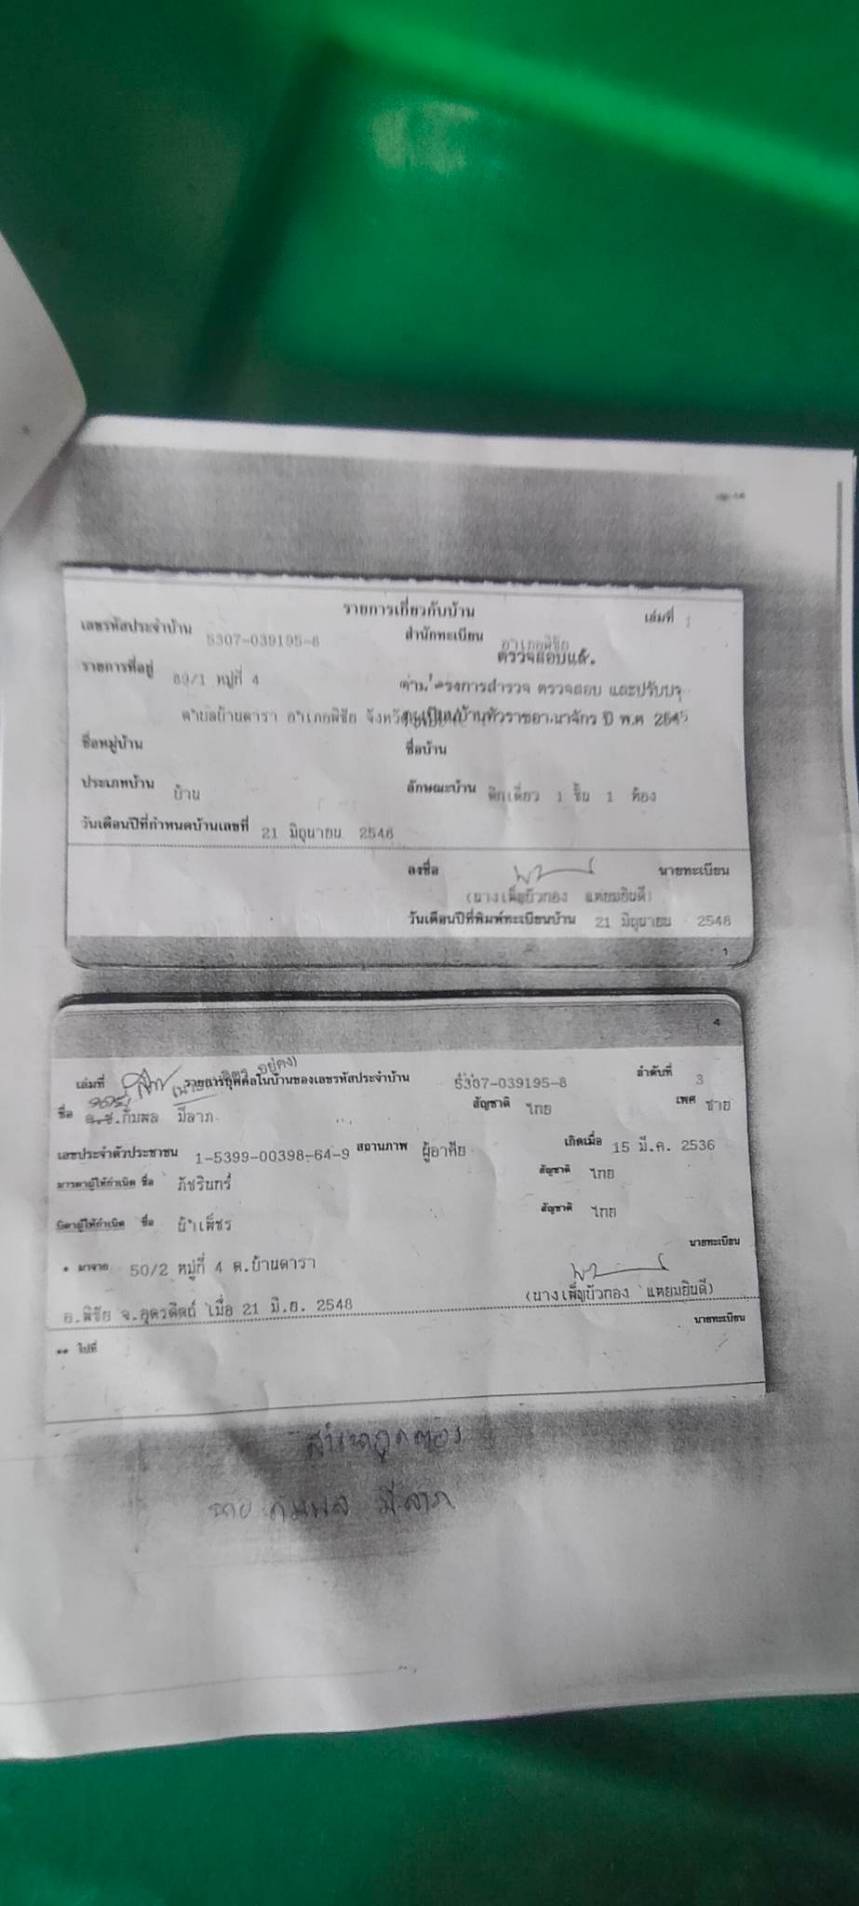 รายการเกี่ยวกับบ้าน เล่มที่ 1
เลขรหัสประจำบ้าน 5307-039195-8 สำนักทะเบียน อำเภอพิชัย
ตรวจสอบแล้ว
รายการที่อยู่ 89/1 หมู่ที่ 4 ตามโครงการสำรวจ ตรวจสอบ และปรับปรุ
ตำบลบ้านดารา อำเภอพิชัย ทะเบียนบ้านทั่วราชอาณาจักร ปี พ.ศ 2545
ชื่อหมู่บ้าน ชื่อบ้าน
ประเภทบ้าน บ้าน ลักษณะบ้าน ตึกเดี่ยว 1 ชั้น 1 ห้อง
วันเดือนปีที่กำหนดบ้านเลขที่ 21 มิถุนายน 2548
ลงชื่อ นายทะเบียน
(นางเพ็ญบัวทอง แหยมยินดี)
วันเดือนปีที่พิมพ์ทะเบียนบ้าน 21 มิถุนายน 2548
1
4
เล่มที่ รายการบุคคลในบ้านของเลขรหัสประจำบ้าน 5307-039195-8 ลำดับที่ 3
ชื่อ ด.ช.กัมพล มีลาภ สัญชาติ ไทย เพศ ชาย
เลขประจำตัวประชาชน 1-5399-00398-64-9 สถานภาพ ผู้อาศัย เกิดเมื่อ 15 มี.ค. 2536
มารดาผู้ให้กำเนิด ชื่อ ภัชรินทร์ สัญชาติ ไทย
บิดาผู้ให้กำเนิด ชื่อ น้ำเพ็ชร สัญชาติ ไทย
* มาจาก 50/2 หมู่ที่ 4 ต.บ้านดารา นายทะเบียน
อ.พิชัย จ.อุตรดิตถ์ เมื่อ 21 มิ.ย. 2548 (นางเพ็ญบัวทอง แหยมยินดี)
** ไปที่ นายทะเบียน
สำเนาถูกต้อง
นาย กัมพล มีลาภ